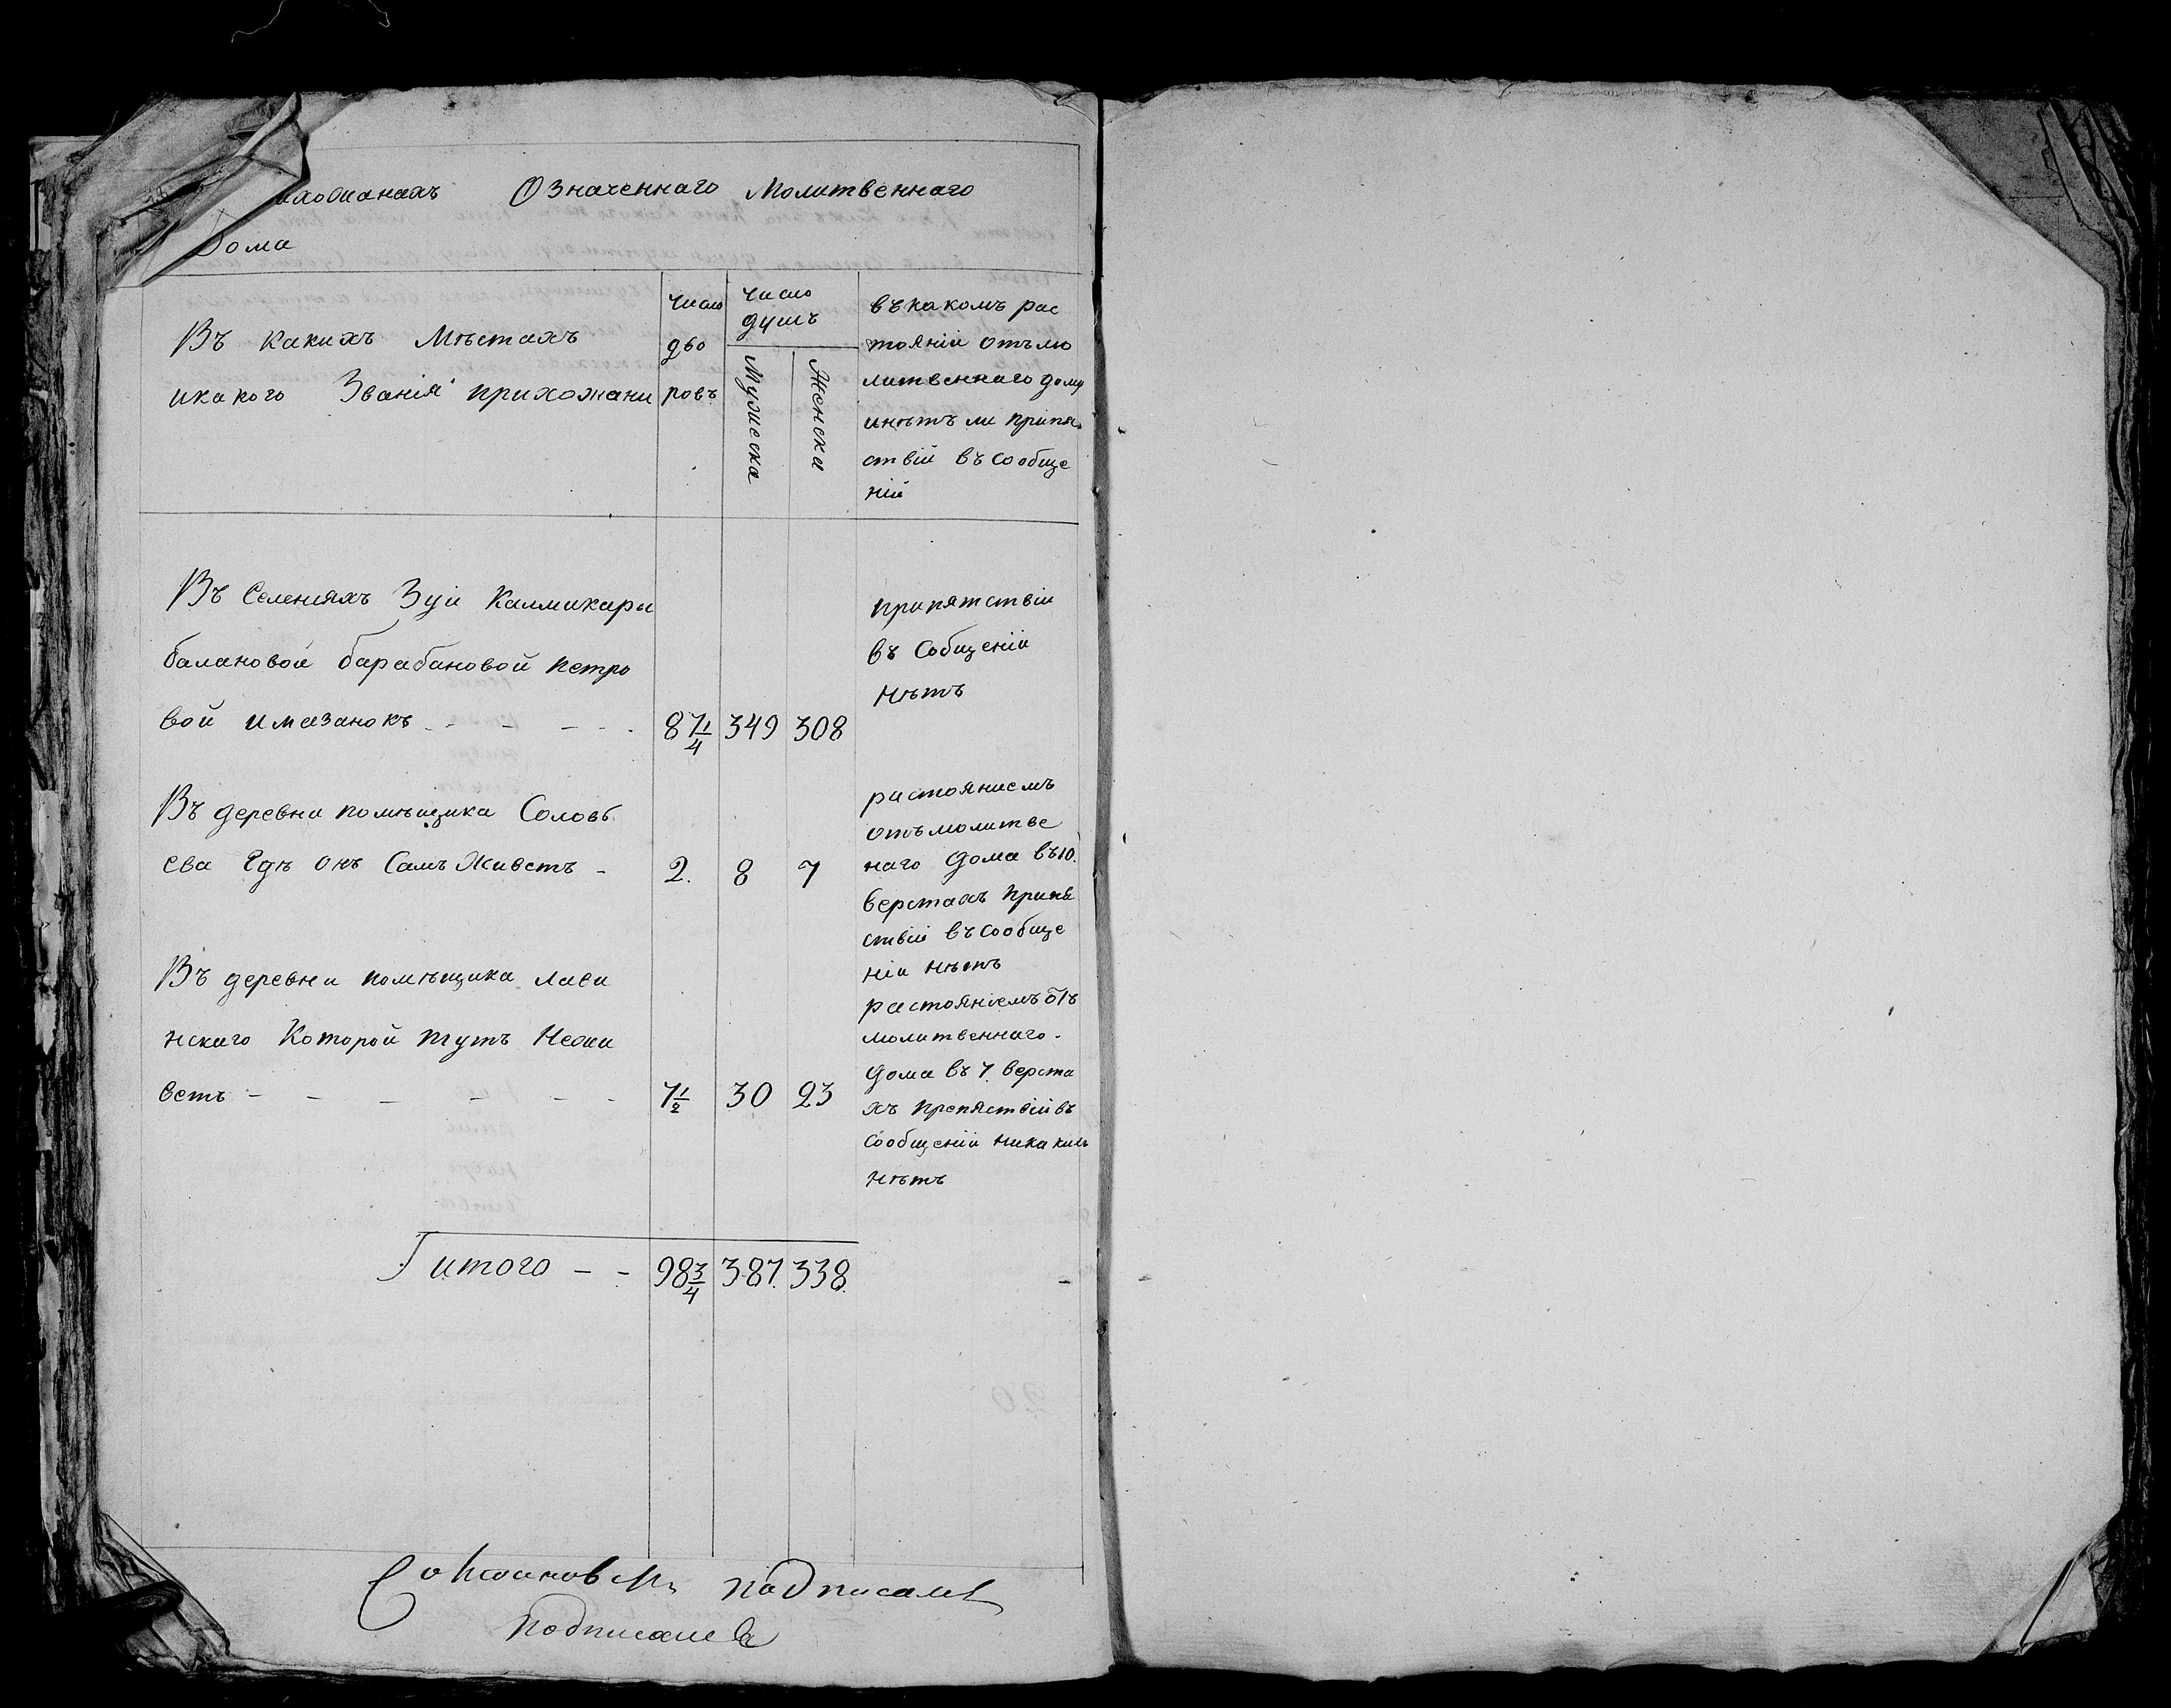 Означеннаго Молитвеннаго
Дома
Въ какихъ Мѣстахъ
икакого Званія прихожани
число
дво
ровъ
число
душъ
Мужеска
Женска
въкакомъ рас
тояніи отъмо
литвеннаго дому
инѣтъ ли припя
ствій въ сообще
ніи
Въ Селенияхъ Зуи Калмикары
балановой барабановой петро
вой имазанокъ - - - -
87 1/4 349 308
припятствіи
въ Собщеніи
нѣтъ
Въ деревни помѣщика Соловь
ева Гдѣ онъ Самъ Живетъ -
2. 8 7
растояниемъ
отъмолитве
наго дома въ10.
верстахъ припя
ствіи въсообще
ніи нѣтъ
Въ деревни помѣщика лави
нскаго Которой тутъ Нежи
ветъ - - - - - -
7 1/2 30 23
растояніемъ отъ
молитвеннаго
дома въ 7. верста
хъ препяствіивъ
сообщеніи никакихъ
нѣтъ
итого - - 98 3/4 387. 338.
подписалъ